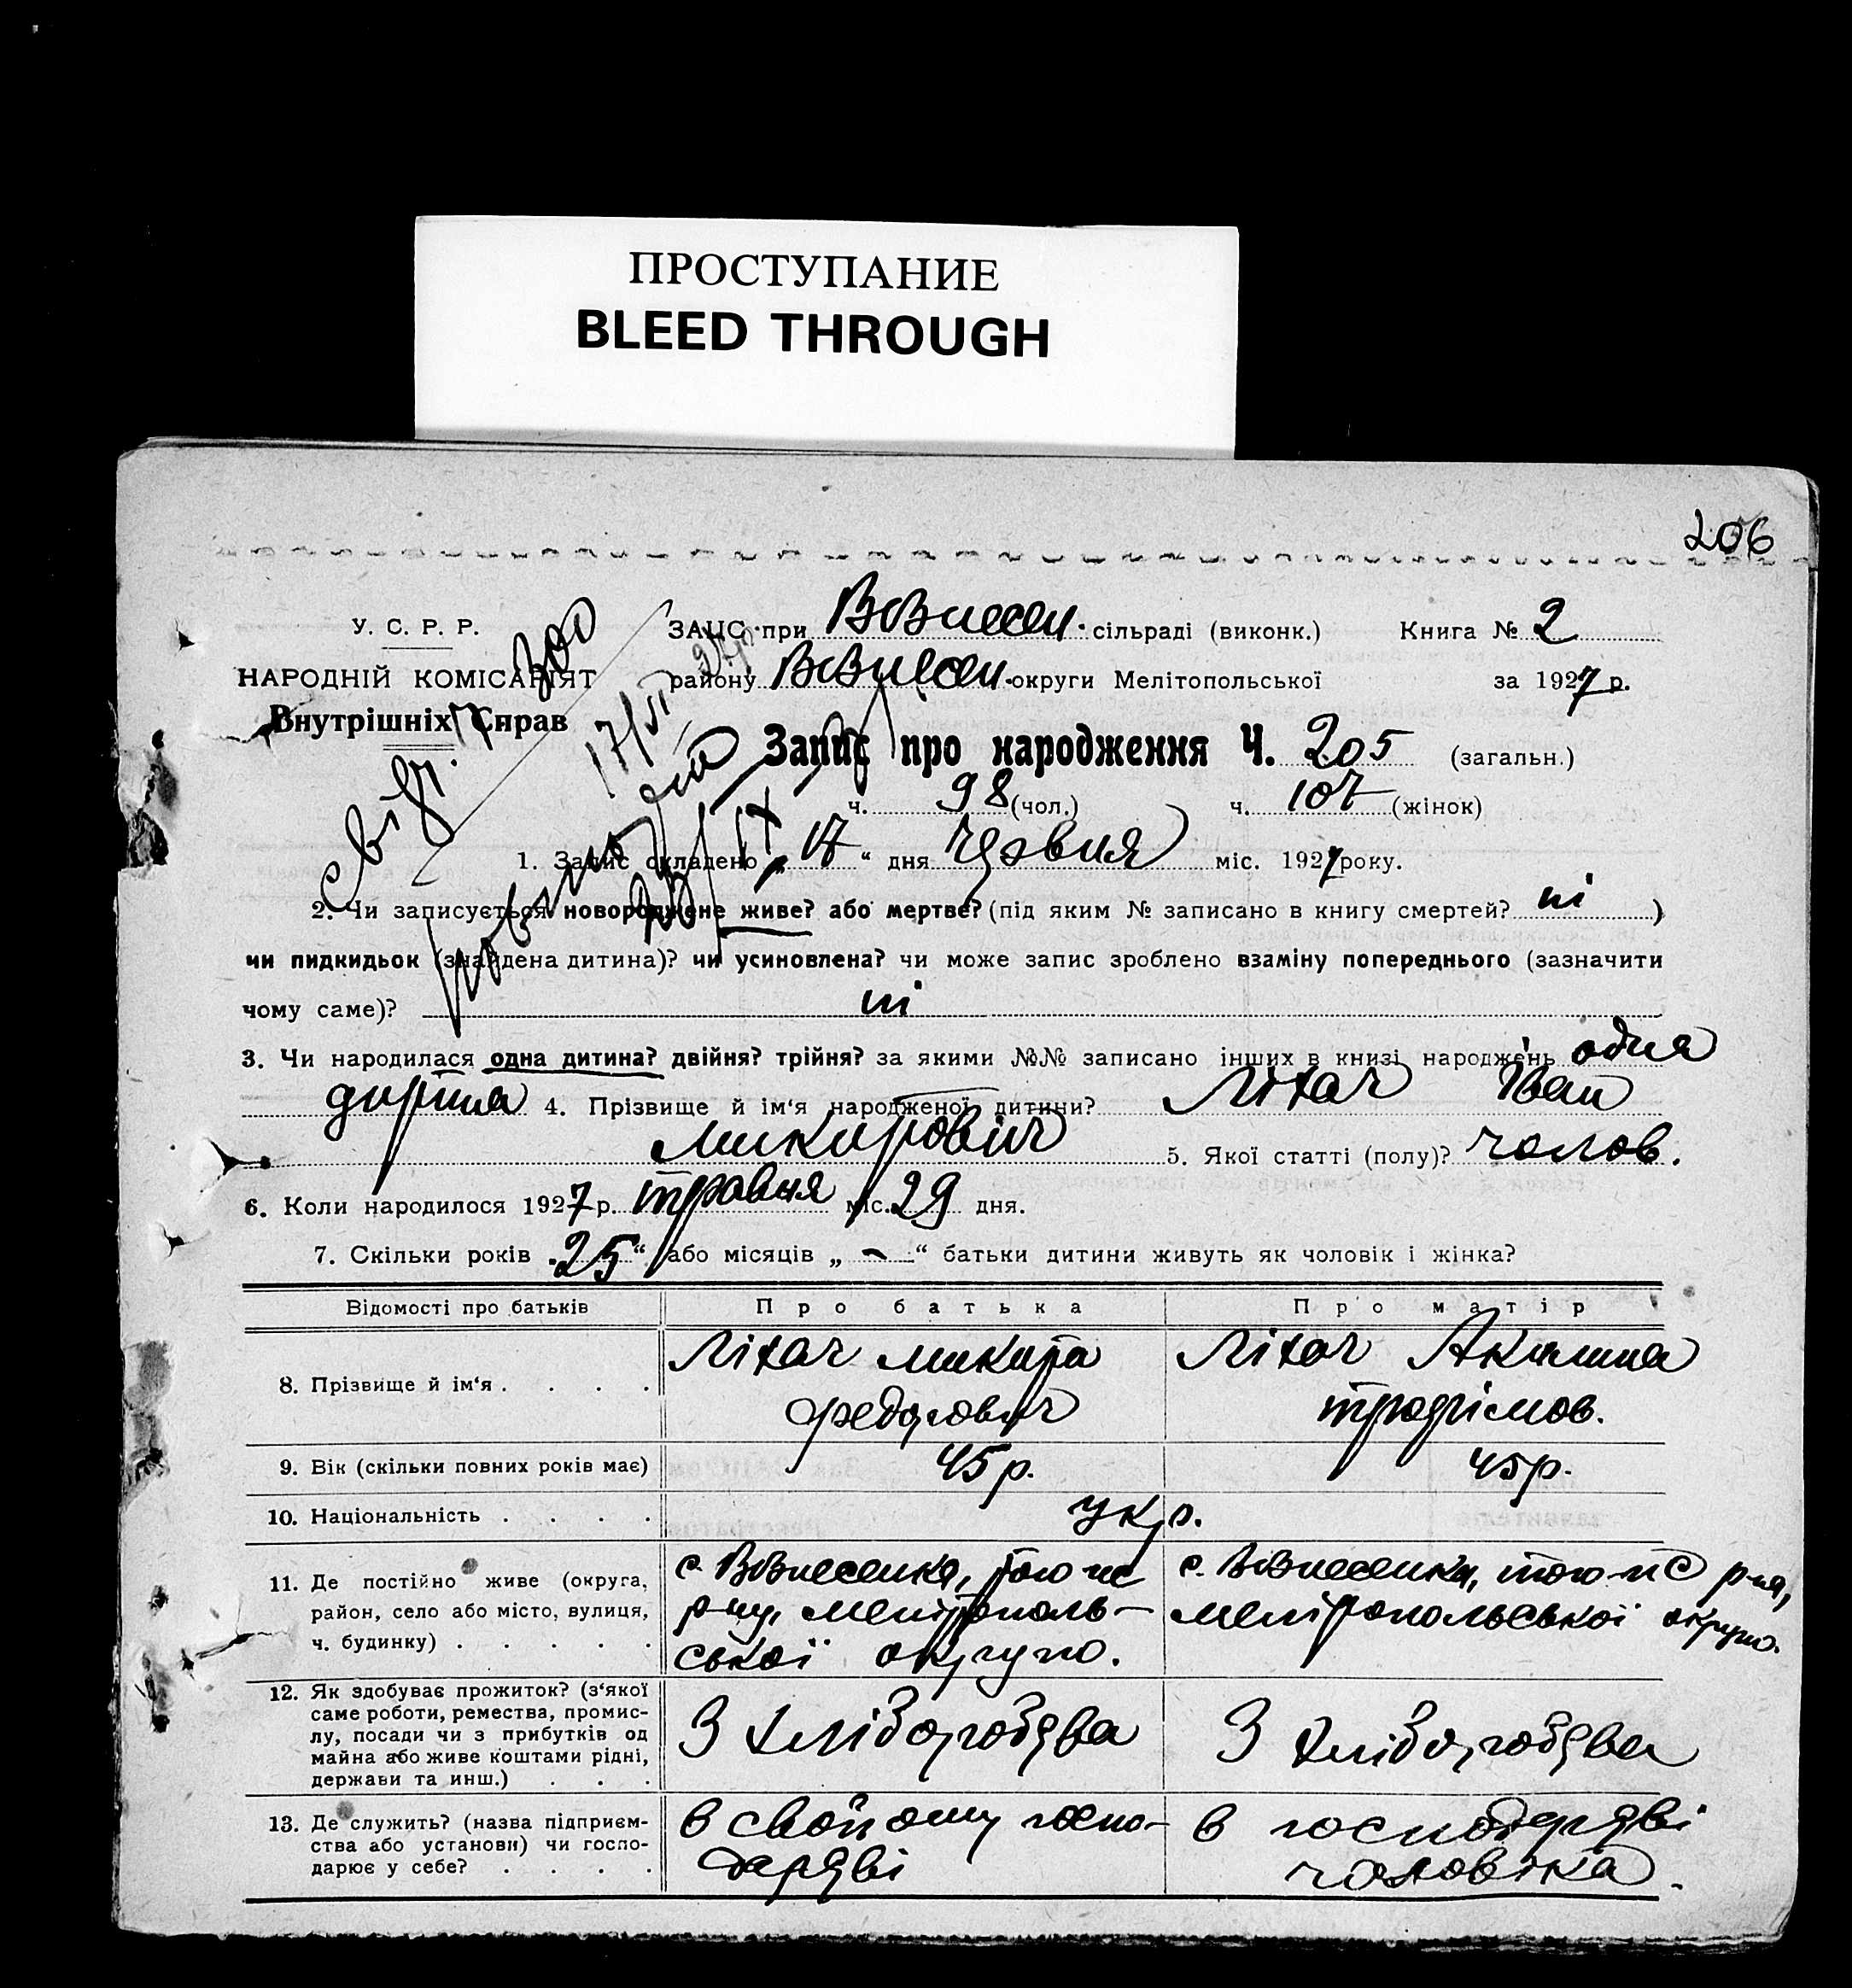 ПРОСТУПАНИЕ
BLEED THROUGH
206
У. С. Р. Р.
НАРОДНІЙ КОМІСАРІЯТ
Внутрішніх Справ
ЗАЦС при Вознесен. сільраді (виконк.) Книга № 2
району Вознесен. округи Мелітопольської за 1927 р.
Запис про народження Ч. 205 (загальн.)
ч. 98 (чол.) ч. 107 (жінок)
свід. 300
17/VI
1. Запис складено „17“ дня червня міс. 1927 року.
2. Чи записується новороджене живе? або мертве? (під яким № записано в книгу смертей? ні )
чи пидкидьок (знайдена дитина)? чи усиновлена? чи може запис зроблено взаміну попереднього (зазначити
чому саме)? ні
3. Чи народилася одна дитина? двійня? трійня? за якими №№ записано інших в книзі народжень одна
дитина 4. Прізвище й ім‘я народженої дитини? Ліхач Іван
Микитович 5. Якої статті (полу)? чолов.
6. Коли народилося 1927 р. травня міс. 29 дня.
7. Скільки років „25“ або місяців „ – “ батьки дитини живуть як чоловік і жінка?
Відомості про батьків Про батька Про матір
8. Прізвище й ім‘я . . . . Ліхач Микита Ліхач Акилина
Федорович Трофімов.
9. Вік (скільки повних років має) 45 р. 45 р.
10. Національність . . . . укр.
11. Де постійно живе (округа, с. Вознесенка, того ж с. Вознесенка, того ж р-ну,
район, село або місто, вулиця, р-ну, Мелітополь- Мелітопольської округи.
ч. будинку) . . . . . ської округи.
12. Як здобуває прожиток? (з‘якої
саме роботи, ремества, промис-
лу, посади чи з прибутків од З хліборобства З хліборобства
майна або живе коштами рідні,
держави та инш.) . . .
13. Де служить? (назва підприєм- в свойому госпо- в господарстві
ства або установи) чи госпо- дарстві чоловіка.
дарює у себе? . . . .